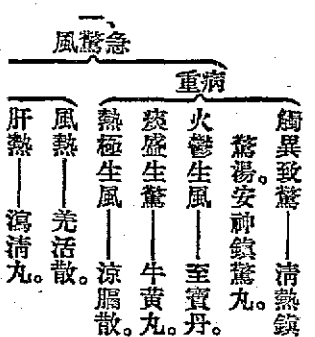 一、
急驚風
重病
觸異致驚——清熱鎮
驚湯。安神鎮驚丸。
火鬱生風——至寶丹。
痰盛生驚——牛黃丸。
熱極生風——涼膈散。
風熱——羌活散。
肝熱——瀉清丸。